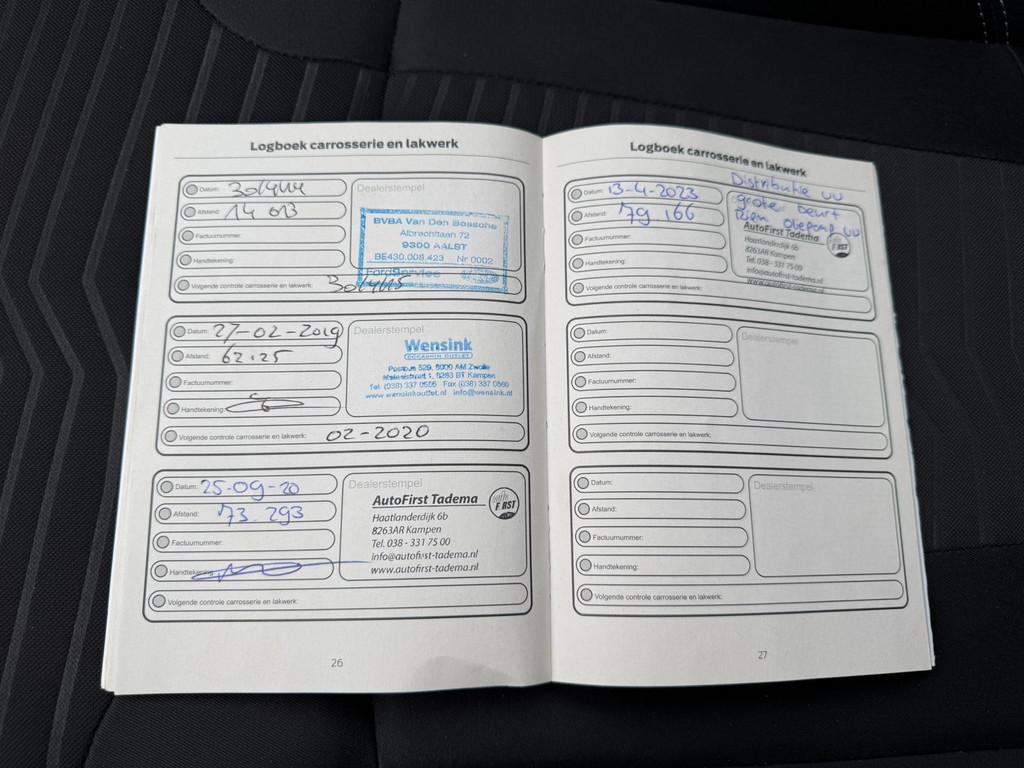 Logboek carrosserie en lakwerk
Datum: 30/4/14
Afstand: 14 013
Factuurnummer:
Handtekening:
Volgende controle carrosserie en lakwerk: 30/4/15
Dealerstempel
BVBA Van Den Bossche
Albrechtlaan 72
9300 AALST
BE430.008.423 Nr 0002
FordService
Datum: 27-02-2019
Afstand: 62.125
Factuurnummer:
Handtekening:
Volgende controle carrosserie en lakwerk: 02-2020
Dealerstempel
Wensink
OCCASION OUTLET
Postbus 329, 8000 AM Zwolle
1, 8263 BT Kampen
Tel. (038) 337 0555 Fax (038) 337 0566
www.wensinkoutlet.nl info@wensink.nl
Datum: 25-09-20
Afstand: 73.293
Factuurnummer:
Handtekening:
Volgende controle carrosserie en lakwerk:
Dealerstempel
AutoFirst Tadema
FIRST
Haatlanderdijk 6b
8263AR Kampen
Tel. 038 - 331 75 00
info@autofirst-tadema.nl
www.autofirst-tadema.nl
26
Logboek carrosserie en lakwerk
Datum: 13-4-2023
Afstand: 79,166
Factuurnummer:
Handtekening:
Volgende controle carrosserie en lakwerk:
Distributie VV
grote beurt
riem oliepomp VV
AutoFirst Tadema
FIRST
Haatlanderdijk 6b
8263AR Kampen
Tel. 038 - 331 75 00
info@autofirst-tadema.nl
www.autofirst-tadema.nl
Datum:
Afstand:
Factuurnummer:
Handtekening:
Volgende controle carrosserie en lakwerk:
Dealerstempel
Datum:
Afstand:
Factuurnummer:
Handtekening:
Volgende controle carrosserie en lakwerk:
Dealerstempel
27